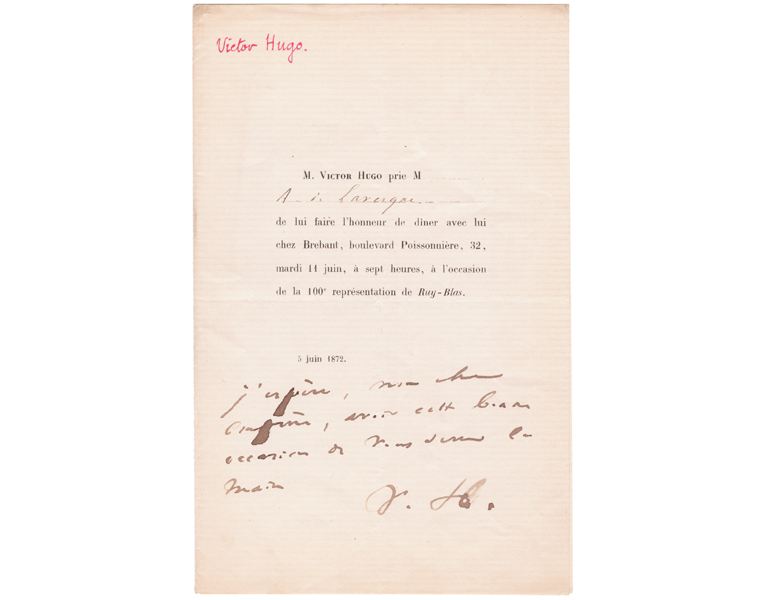 Victor Hugo.
M. VICTOR HUGO prie M
A. de Lavergne
de lui faire l'honneur de dîner avec lui
chez Brebant, boulevard Poissonnière, 32,
mardi 11 juin, à sept heures, à l'occasion
de la 100e représentation de Ruy-Blas.
5 juin 1872.
j'espère, mon cher
confrère, avoir cette bonne
occasion de vous serrer la
main
V. H.